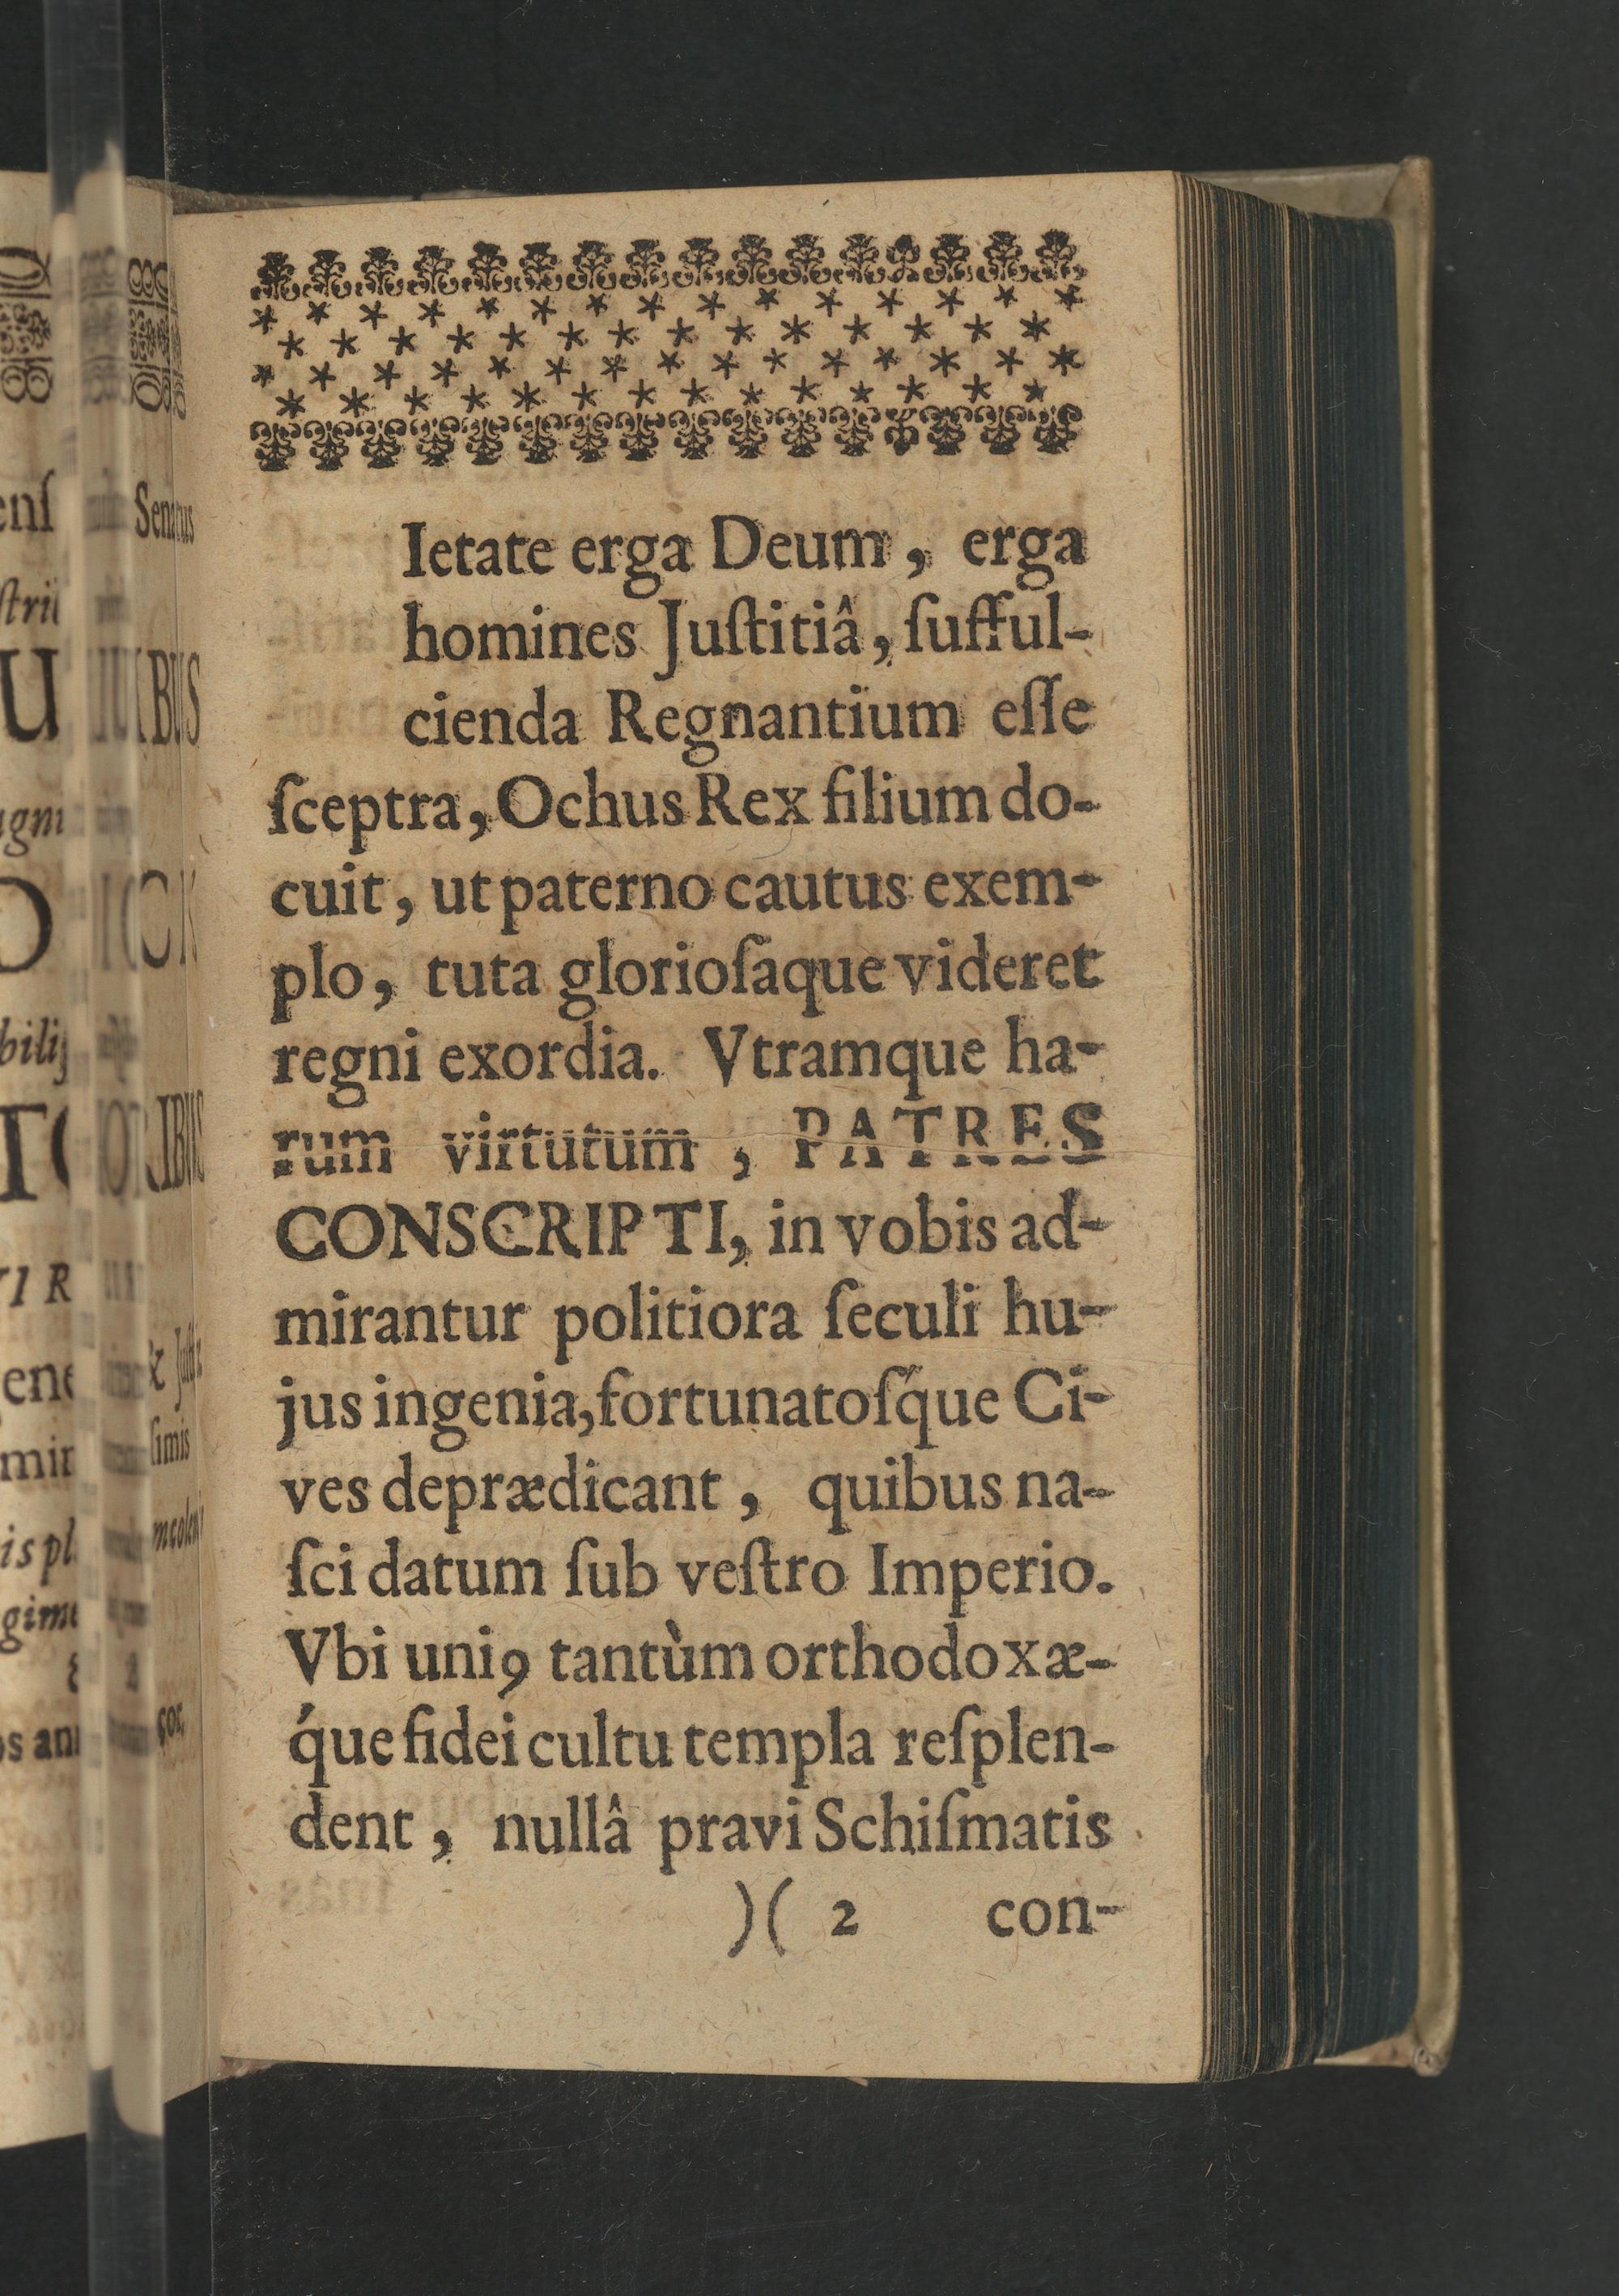 Ietate erga Deum, erga
homines Juſtitiâ, ſufful-
cienda Regnantium eſſe
ſceptra, Ochus Rex filium do-
cuit, ut paterno cautus exem-
plo, tuta glorioſaque videret
regni exordia. Vtramque ha-
rum virtutum, PATRES
CONSCRIPTI, in vobis ad-
mirantur politiora ſeculi hu-
jus ingenia, fortunatoſq́ue Ci-
ves deprædicant, quibus na-
ſci datum ſub veſtro Imperio.
Vbi uniꝯ tantùm orthodoxæ-
q́ue fidei cultu templa reſplen-
dent, nullâ pravi Schiſmatis
)( 2 con-